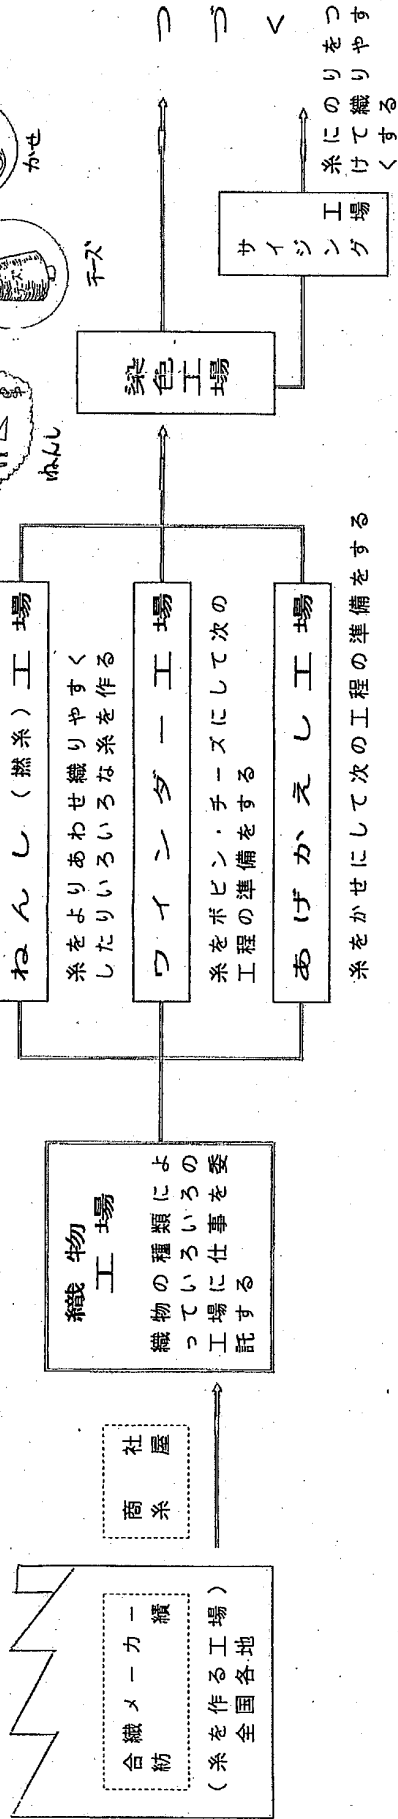 合繊メーカー
紡績
(糸を作る工場)
全国各地
商社
糸屋
織物
工場
織物の種類によ
っていろいろの
工場に仕事を委
託する
ねんし(撚糸)工場
糸をよりあわせ織りやすく
したりいろいろな糸を作る
ワインダー工場
糸をボビン・チーズにして次の
工程の準備をする
あげかえし工場
糸をかせにして次の工程の準備をする
ねんし
チーズ
かせ
染色
工場
サイジング
工場
糸にのりをつ
けて織りやす
くする
つづく